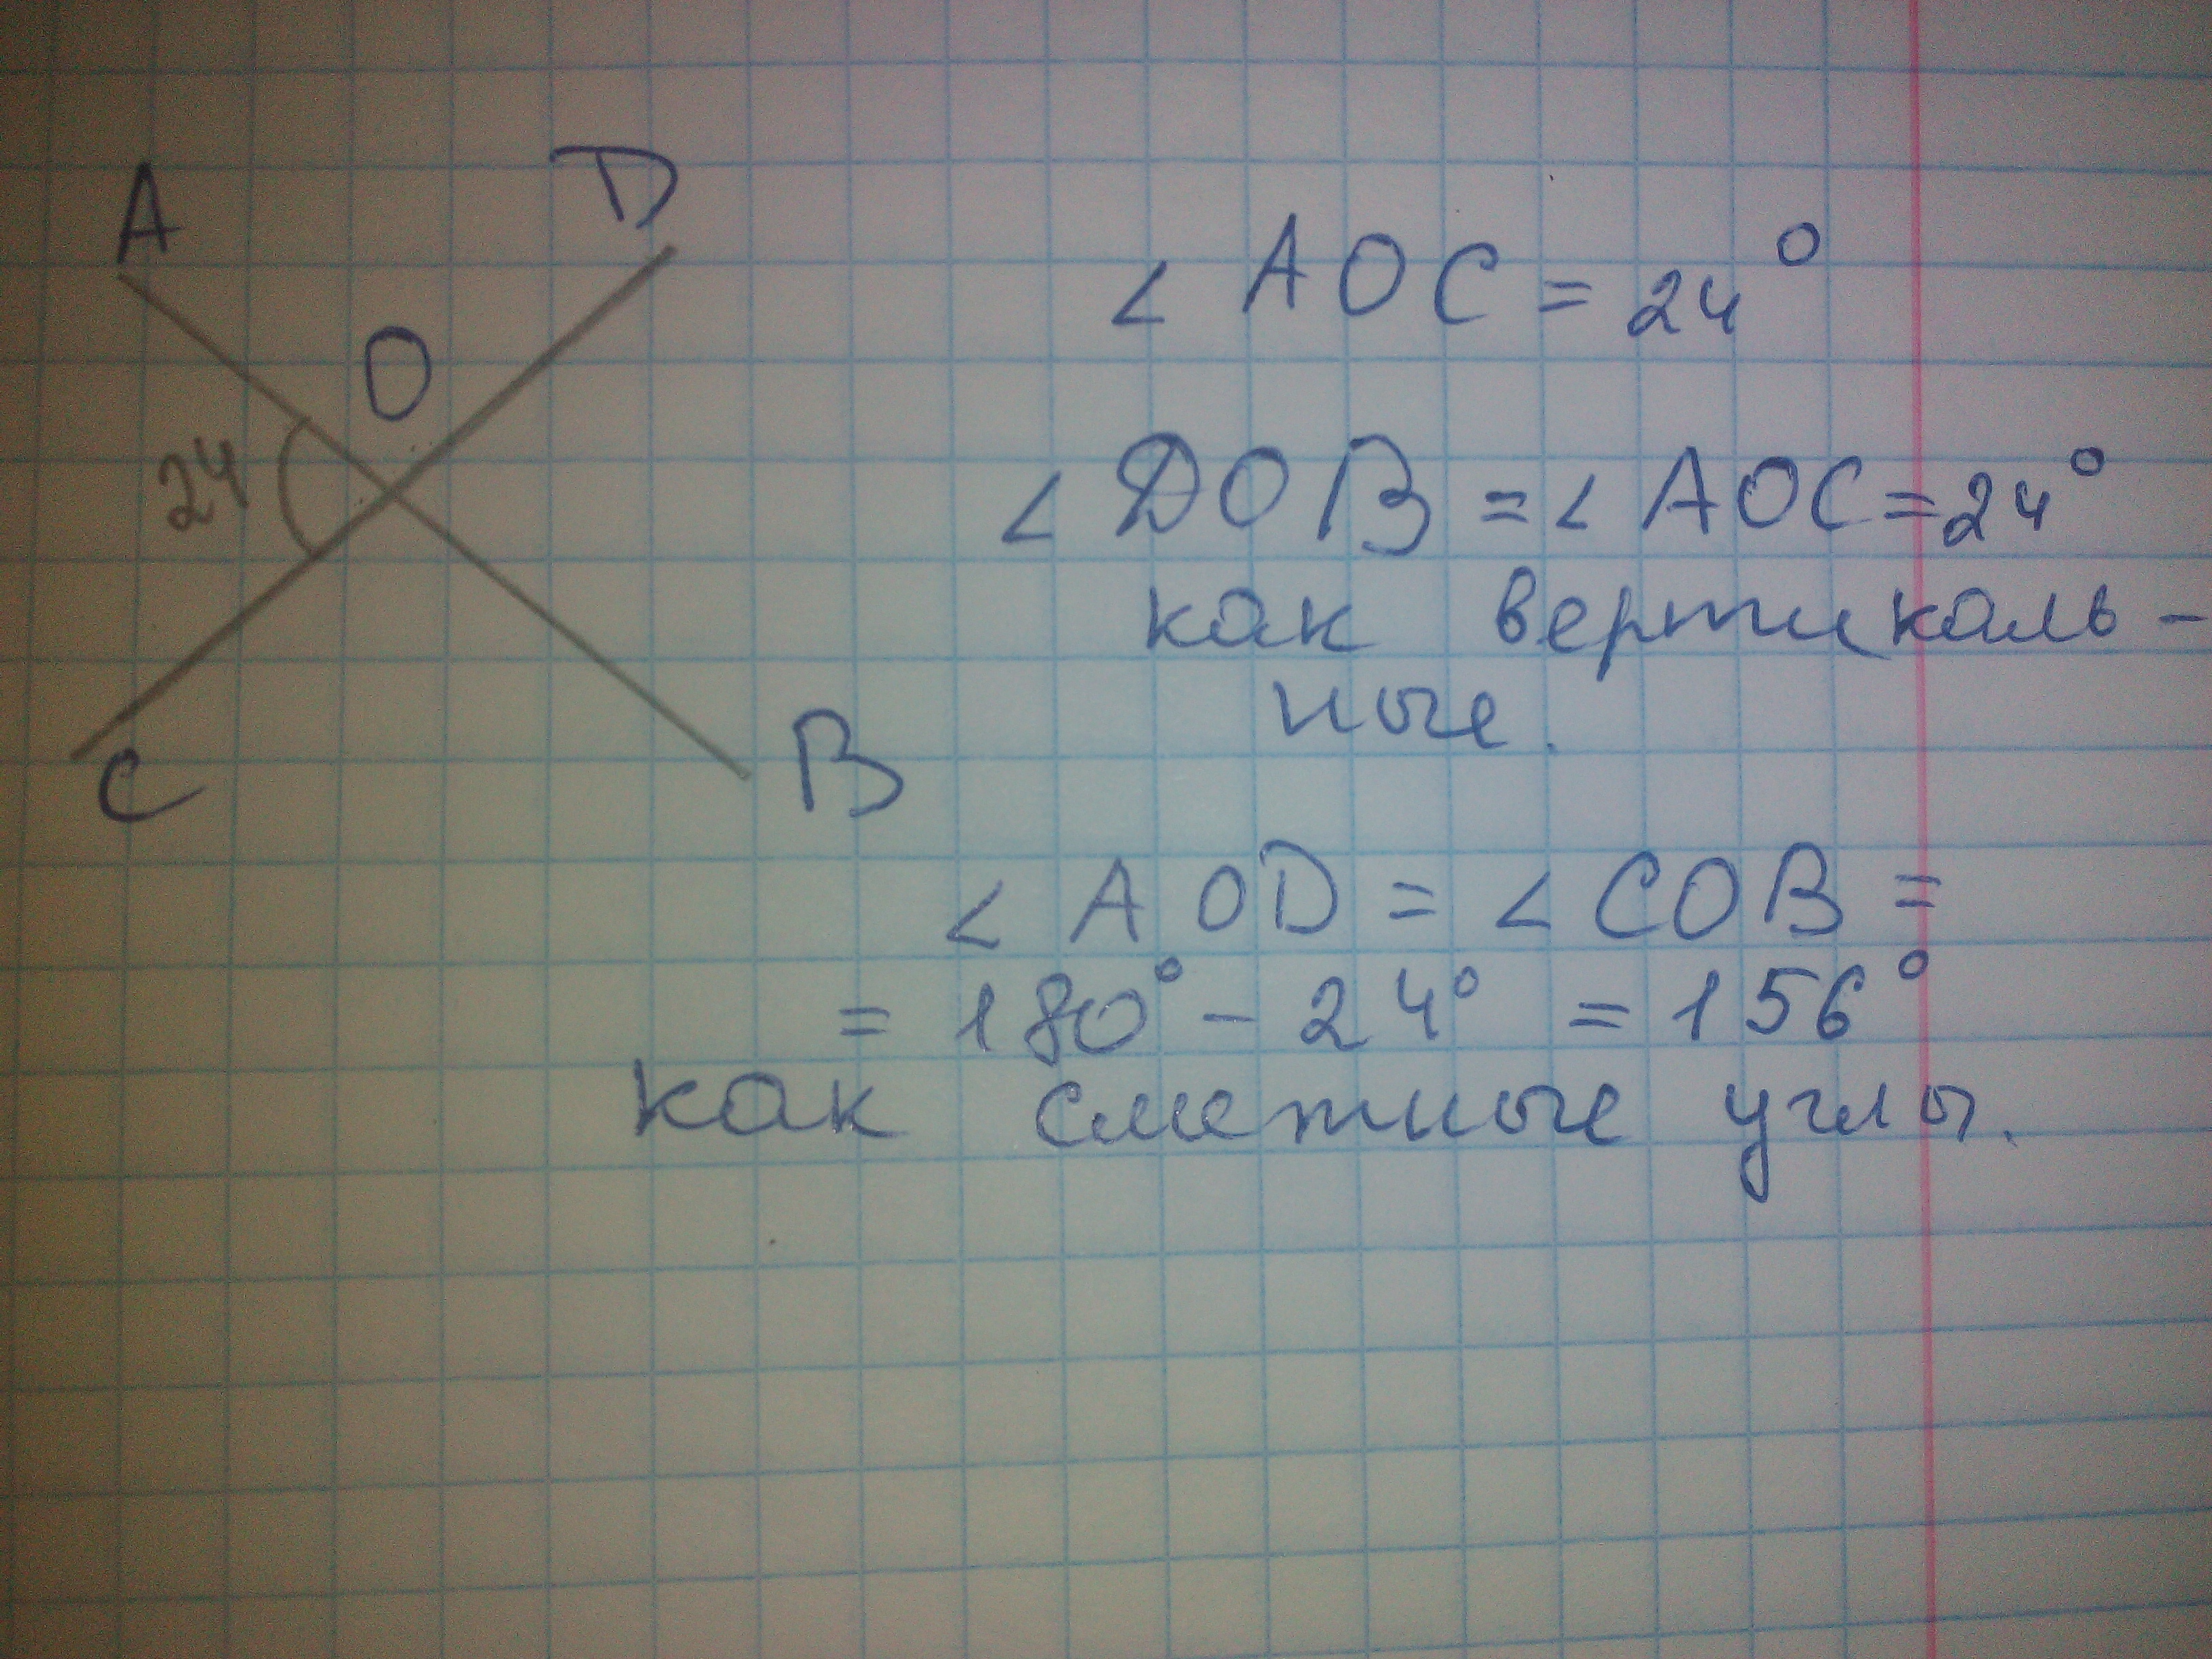 A
D
O
24
C
B
∠ AOC = 24°
∠ DOB = ∠ AOC = 24°
как вертикаль-
ные.
∠ AOD = ∠ COB =
= 180° - 24° = 156°
как смежные углы.